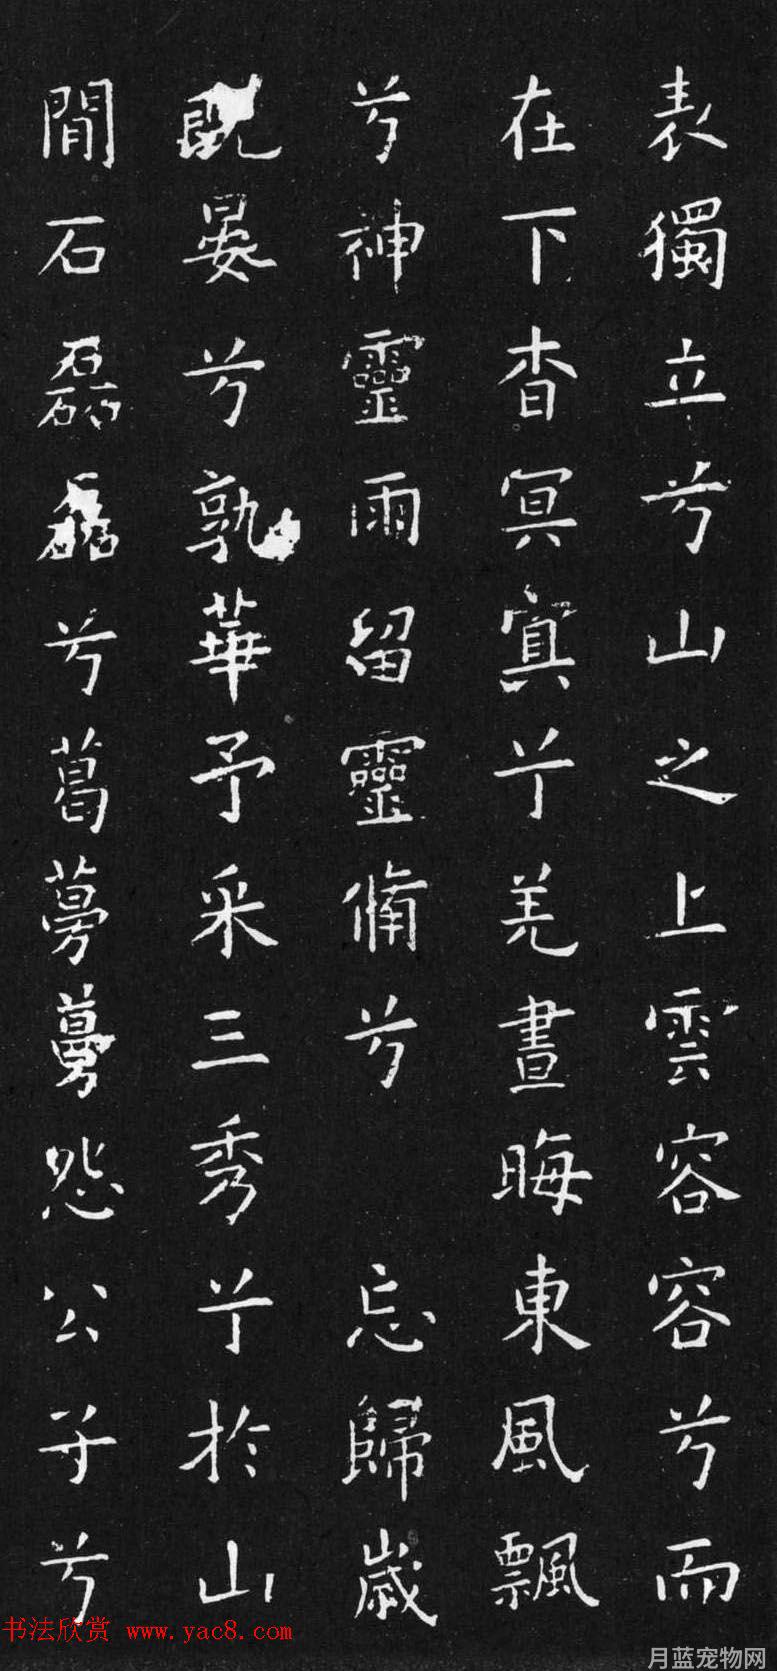 表獨立兮山之上雲容容兮而
在下杳冥冥兮羌晝晦東風飄
兮神靈雨留靈脩兮忘歸歲
既晏兮孰華予采三秀兮於山
間石磊磊兮葛蔓蔓怨公子兮
书法欣赏 www.yac8.com
月蓝宠物网